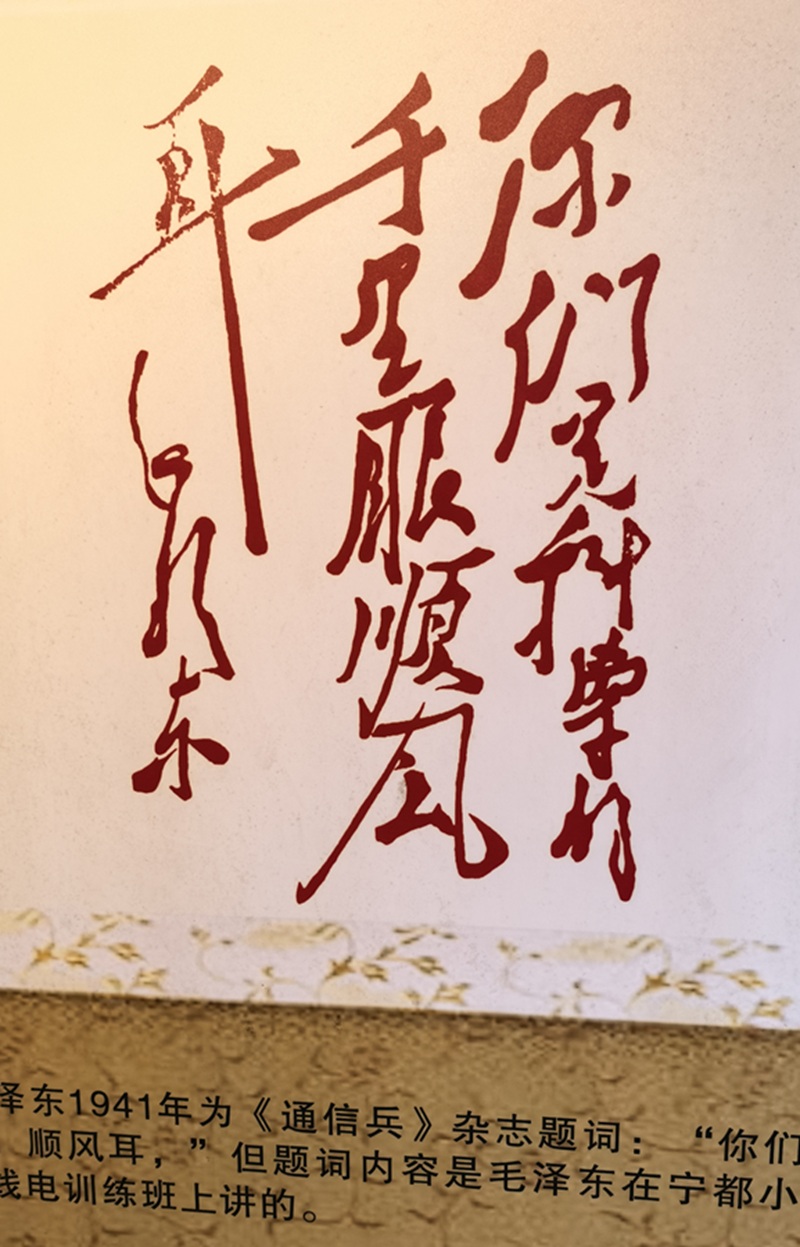 你们是科学的
千里眼顺风
耳
毛泽东
泽东1941年为《通信兵》杂志题词：“你们
顺风耳，”但题词内容是毛泽东在宁都小
线电训练班上讲的。